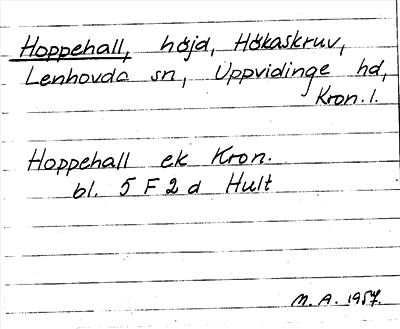 Hoppehall, höjd, Hökaskruv,
Lenhovda sn, Uppvidinge hd,
Kron. l.
Hoppehall ek Kron.
bl. 5 F 2 d Hult
M. A. 1957.